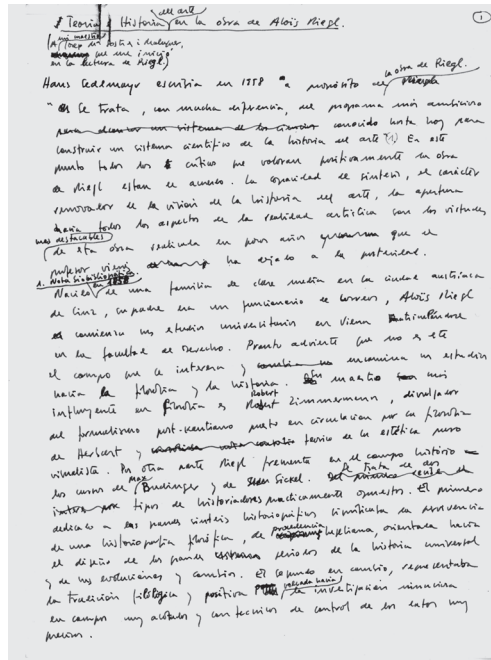 1
Teoría e Historia del arte en la obra de Aloïs Riegl.
(A mi maestro
que me inició
en la lectura de Riegl)
Hans Sedlmayr escribía en 1958 a propósito de la obra de Riegl.
"Se trata, con mucha diferencia, del programa más ambicioso
conocido hasta hoy para
construir un sistema científico de la historia del arte" (1) En este
punto todos los críticos que valoran positivamente la obra
de Riegl están de acuerdo. La capacidad de síntesis, el carácter
renovador de la visión de la historia del arte, la apertura
hacia todos los aspectos de la realidad artística son las virtudes
más destacables
de esta obra realizada en pocos años que el
profesor vienés ha dejado a la posteridad.
1. Nota biobibliográfica
Nacido en 1858 de una familia de clase media en la ciudad austriaca
de Linz, su padre era un funcionario de correos, Aloïs Riegl
comienza sus estudios universitarios en Viena
en la facultad de Derecho. Pronto advierte que no es este
el campo que le interesa y encamina sus estudios
hacia la filosofía y la historia. Su maestro más
influyente en filosofía es Robert Zimmermann, divulgador
del formalismo post-kantiano puesto en circulación por la filosofía
de Herbart y teórico de la estética puro
visualista. Por otra parte Riegl frecuenta en el campo histórico
los cursos de Max Büdinger y de Sickel. Se trata de dos
tipos de historiadores prácticamente opuestos. El primero
dedicado a las grandes síntesis historiográficas significaba la pervivencia
de una historiografía filosófica, de procedencia hegeliana, orientada hacia
el diseño de los grandes períodos de la historia universal
y de sus evoluciones y cambios. El segundo en cambio, representaba
la tradición filológica y positiva volcada hacia la investigación minuciosa
en campos muy acotados y con técnicas de control de los datos muy
precisos.